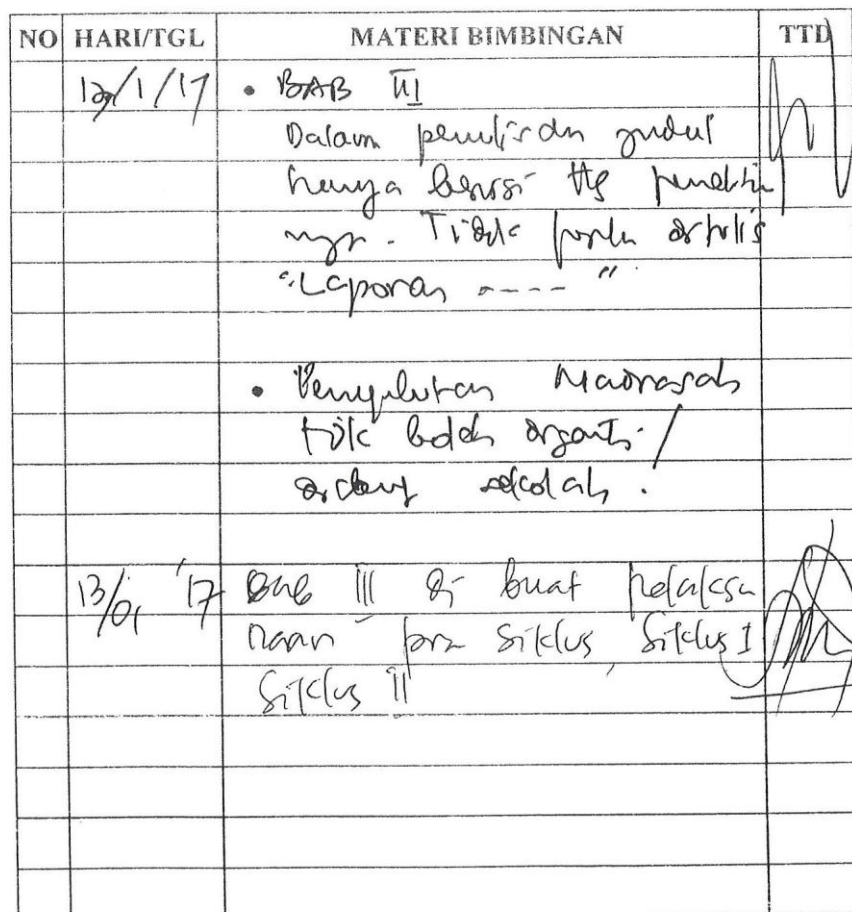 NO HARI/TGL MATERI BIMBINGAN TTD
12/1/17 • BAB III
Dalam penulisan judul
hanya berisi ttg peneliti
nya. Tidak perlu ditulis
"Laporan ----"
• Penyebutan Madrasah
tdk boleh diganti /
dengan sekolah.
13/01 '17 Bab III di buat pelaksa
naan pra siklus, Siklus I
Siklus II